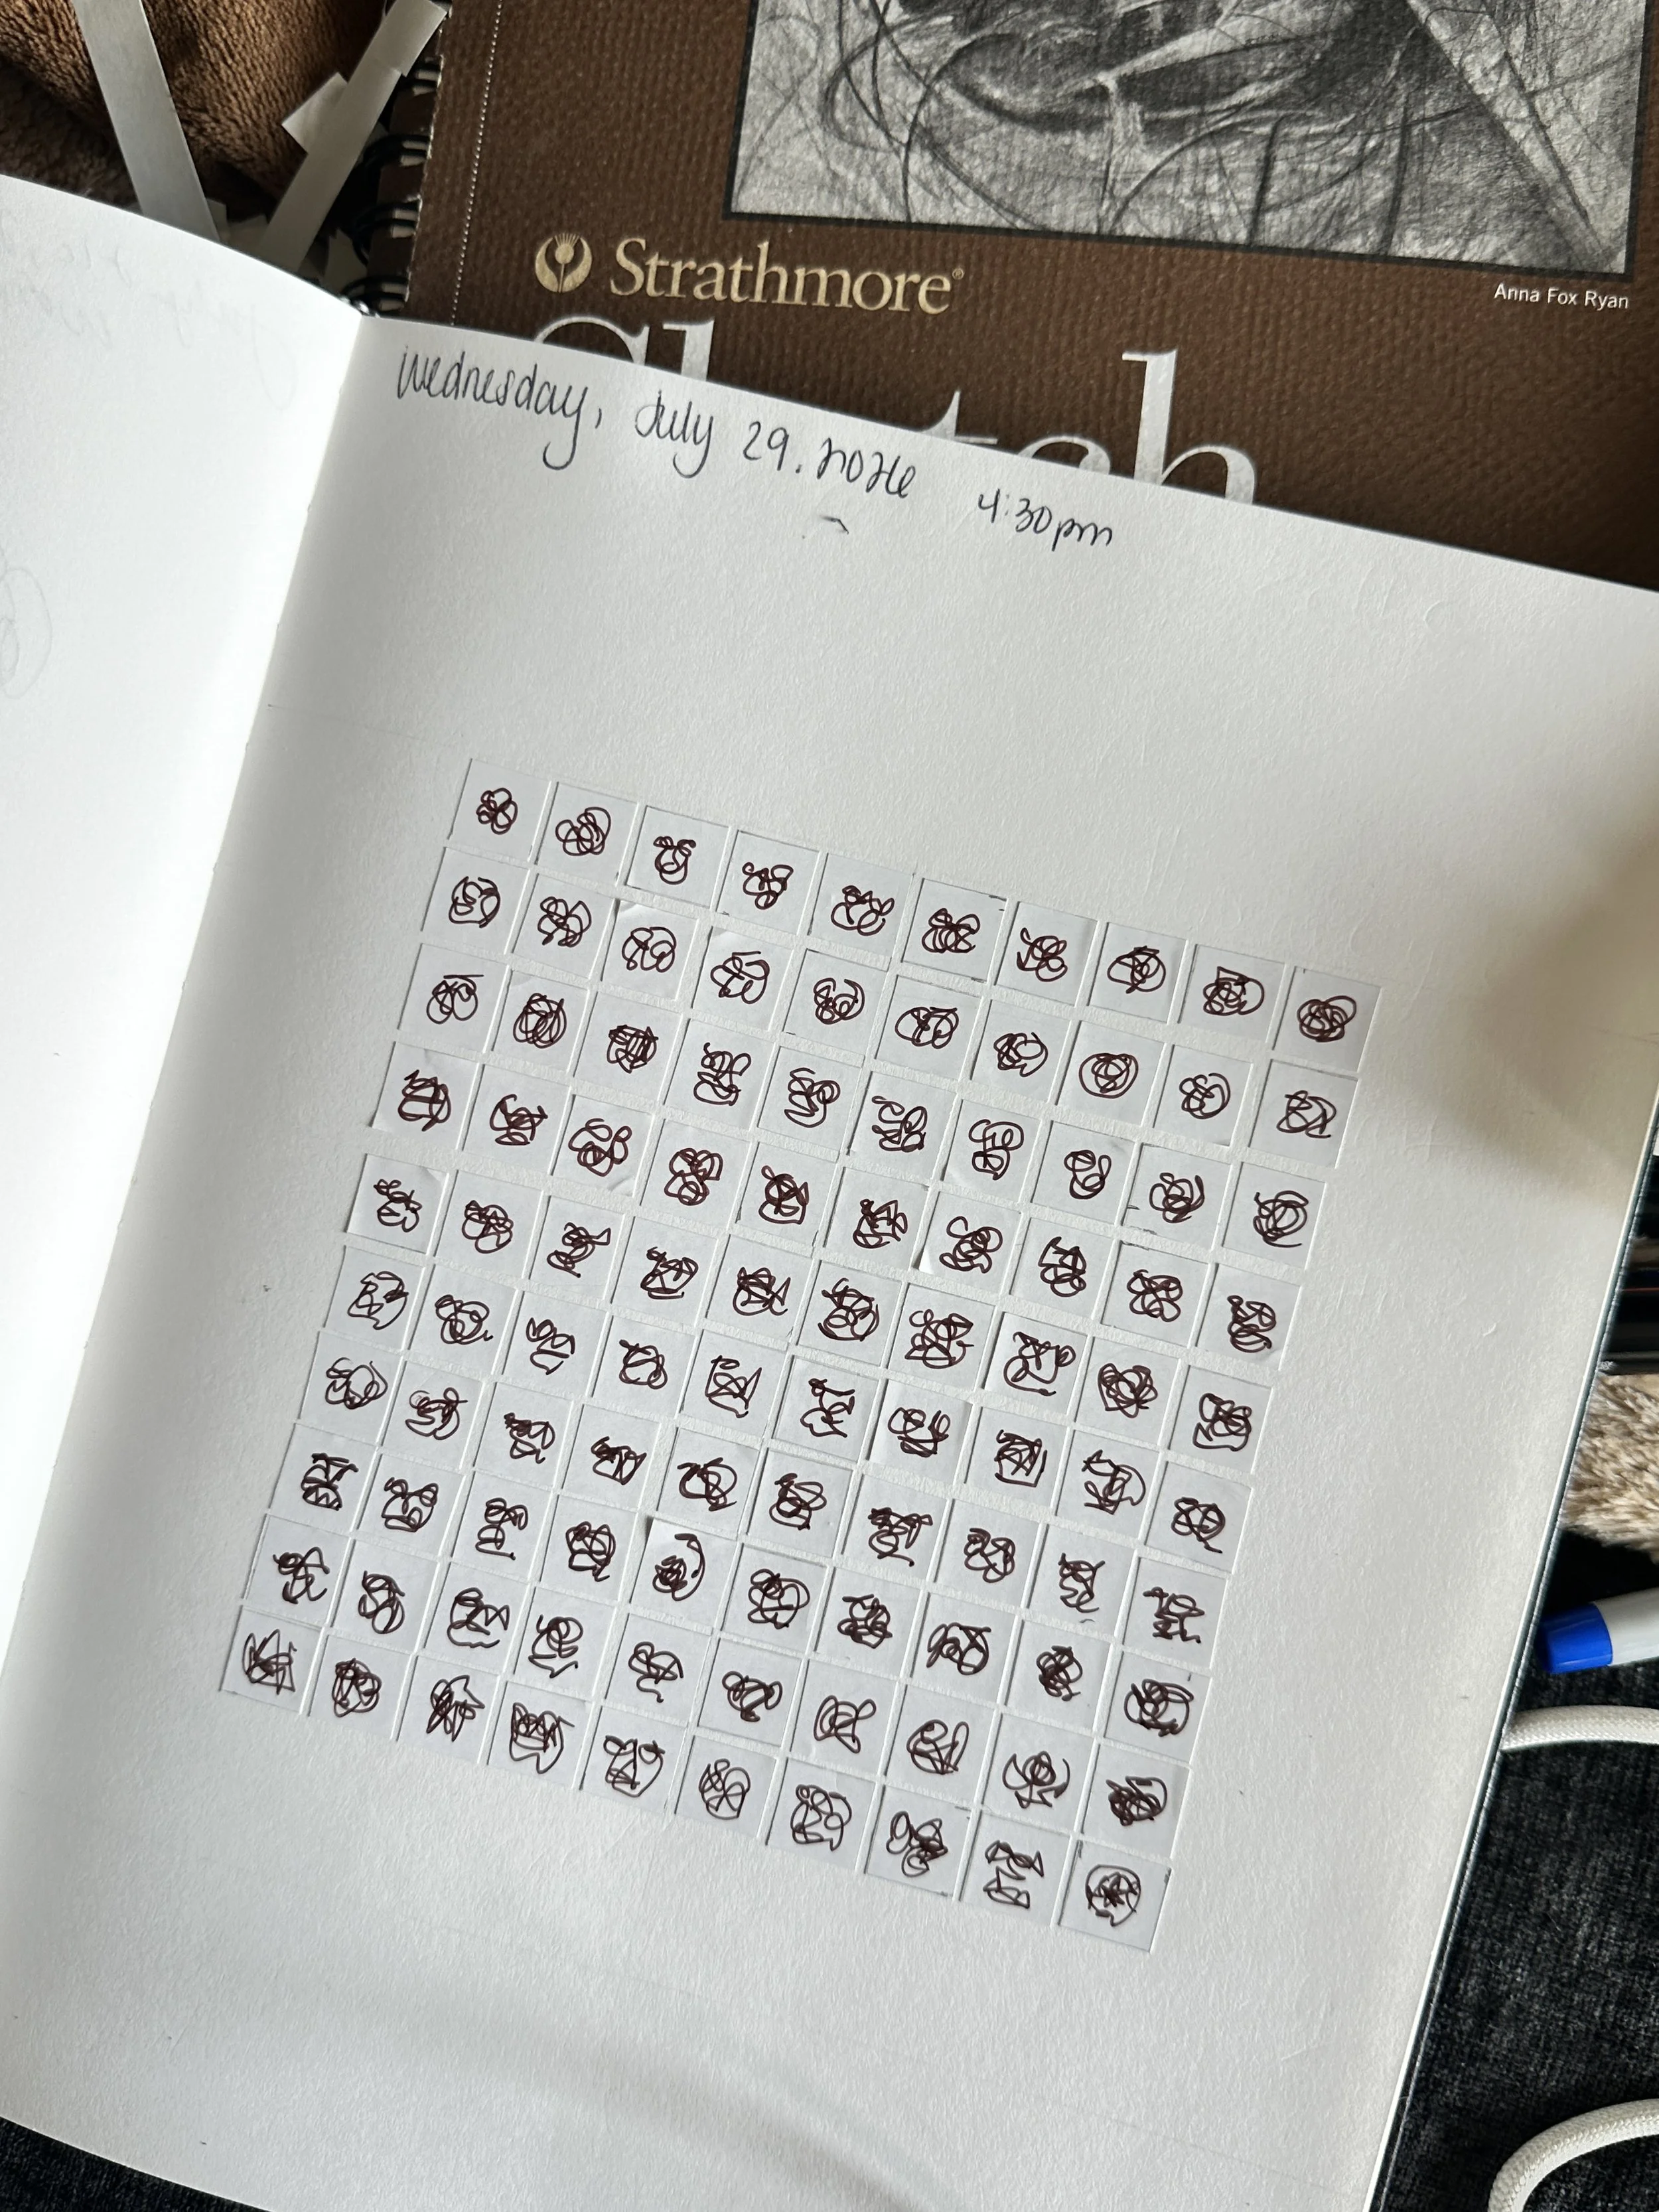 Strathmore®
Anna Fox Ryan
Sketch
Wednesday, July 29. 2026 4:30pm